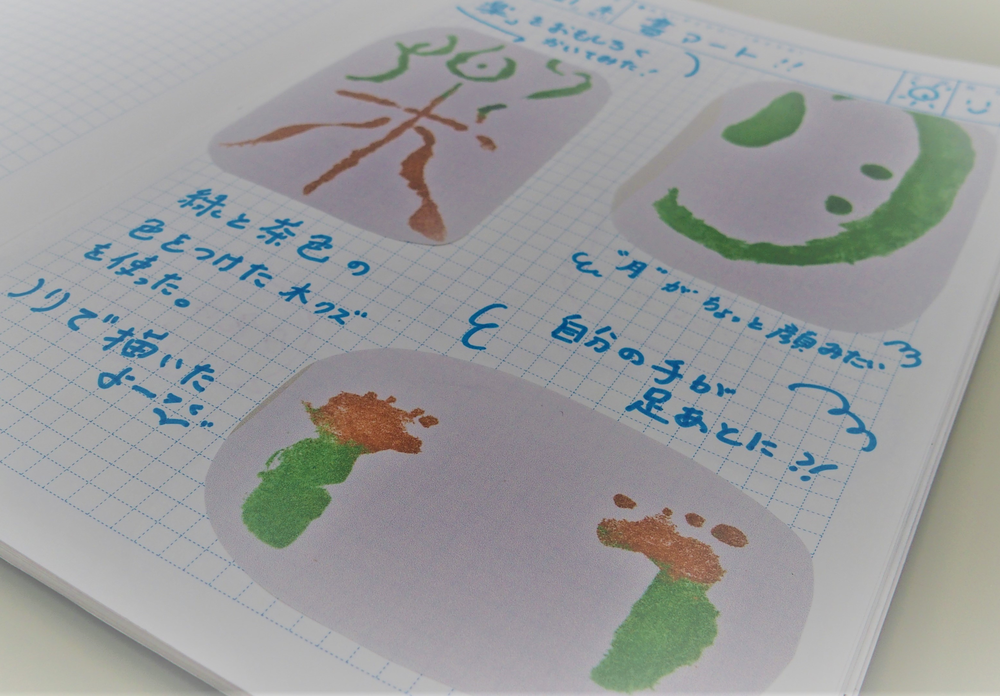 書アート!!
楽」をおもしろく
かいてみた!
楽
"月"がちょっと顔みたい
緑と茶色の
色をつけた木クズ
を使った。
ノリで描いた
自分の手が
足あとに!!